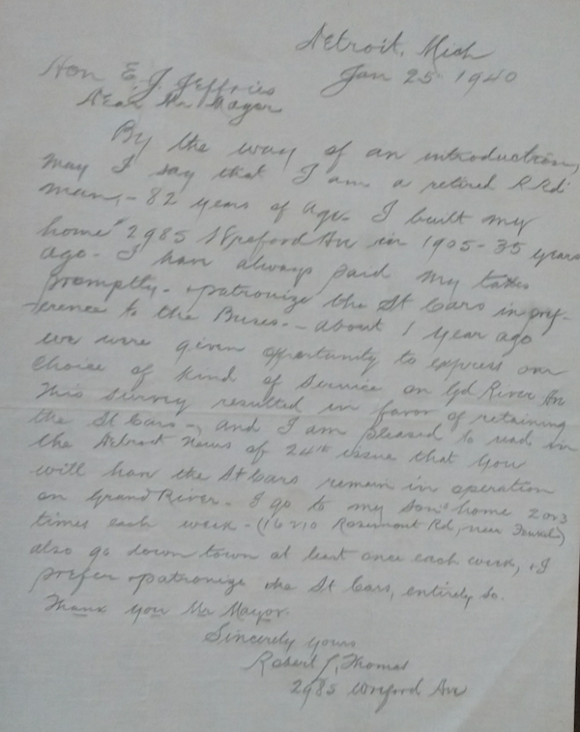 Detroit, Mich
Jan 25 1940
Hon E. J. Jeffries
Dear Mr Mayor
By the way of an introduction,
may I say that I am a retired R Rd
man, - 82 years of age. I built my
home 2985 Wreford Av in 1905 - 35 years
ago - I have always paid my taxes
promptly - patronize the St Cars in pref-
-erence to the Buses. - about 1 year ago
we were given opportunity to express our
choice of kind of service on Gd River Av
This survey resulted in favor of retaining
the St Cars -, and I am pleased to read in
the Detroit News of 24th issue that you
will have the St Cars remain in operation
on Grand River - I go to my sons home 2 or 3
times each week - (16210 Rosemont Rd, near Fenkel)
also go down town at least once each week, I
prefer patronize the St Cars, entirely so.
Thank you Mr Mayor.
Sincerely yours
Robert J, Thomas
2985 Wreford Av